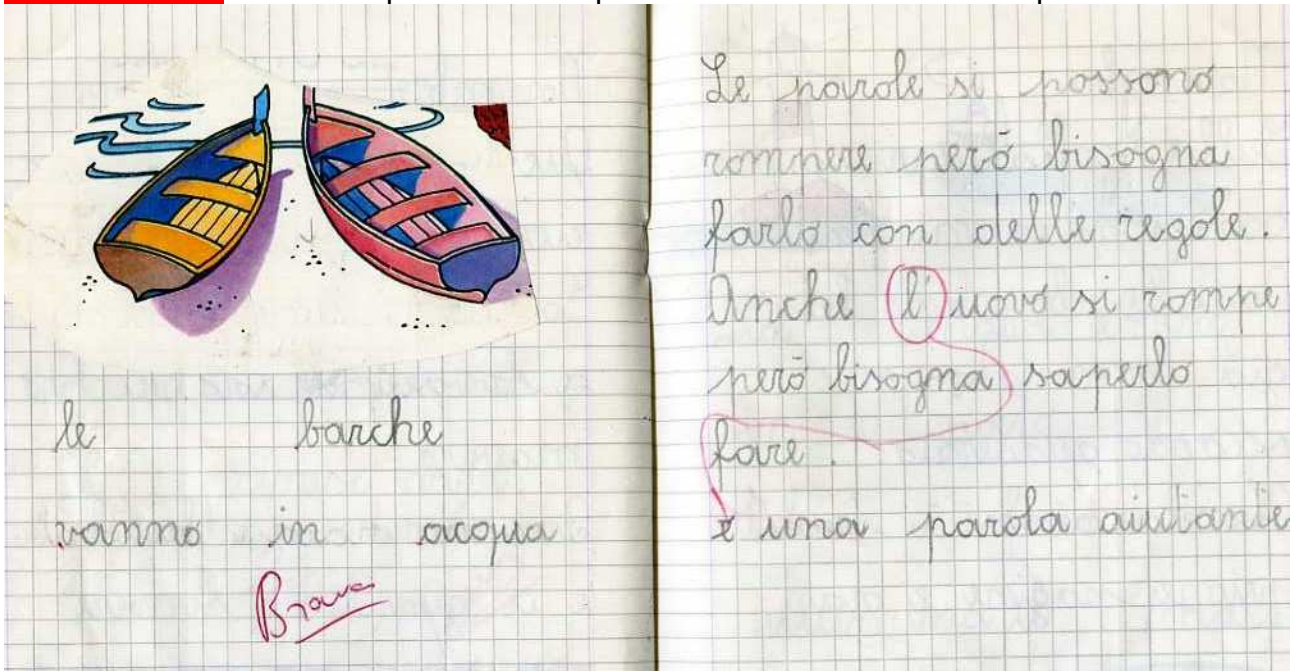 le barche
vanno in acqua
Brava
Le parole si possono
rompere però bisogna
farlo con delle regole.
Anche l'uovo si rompe
però bisogna saperlo
fare.
è una parola aiutante